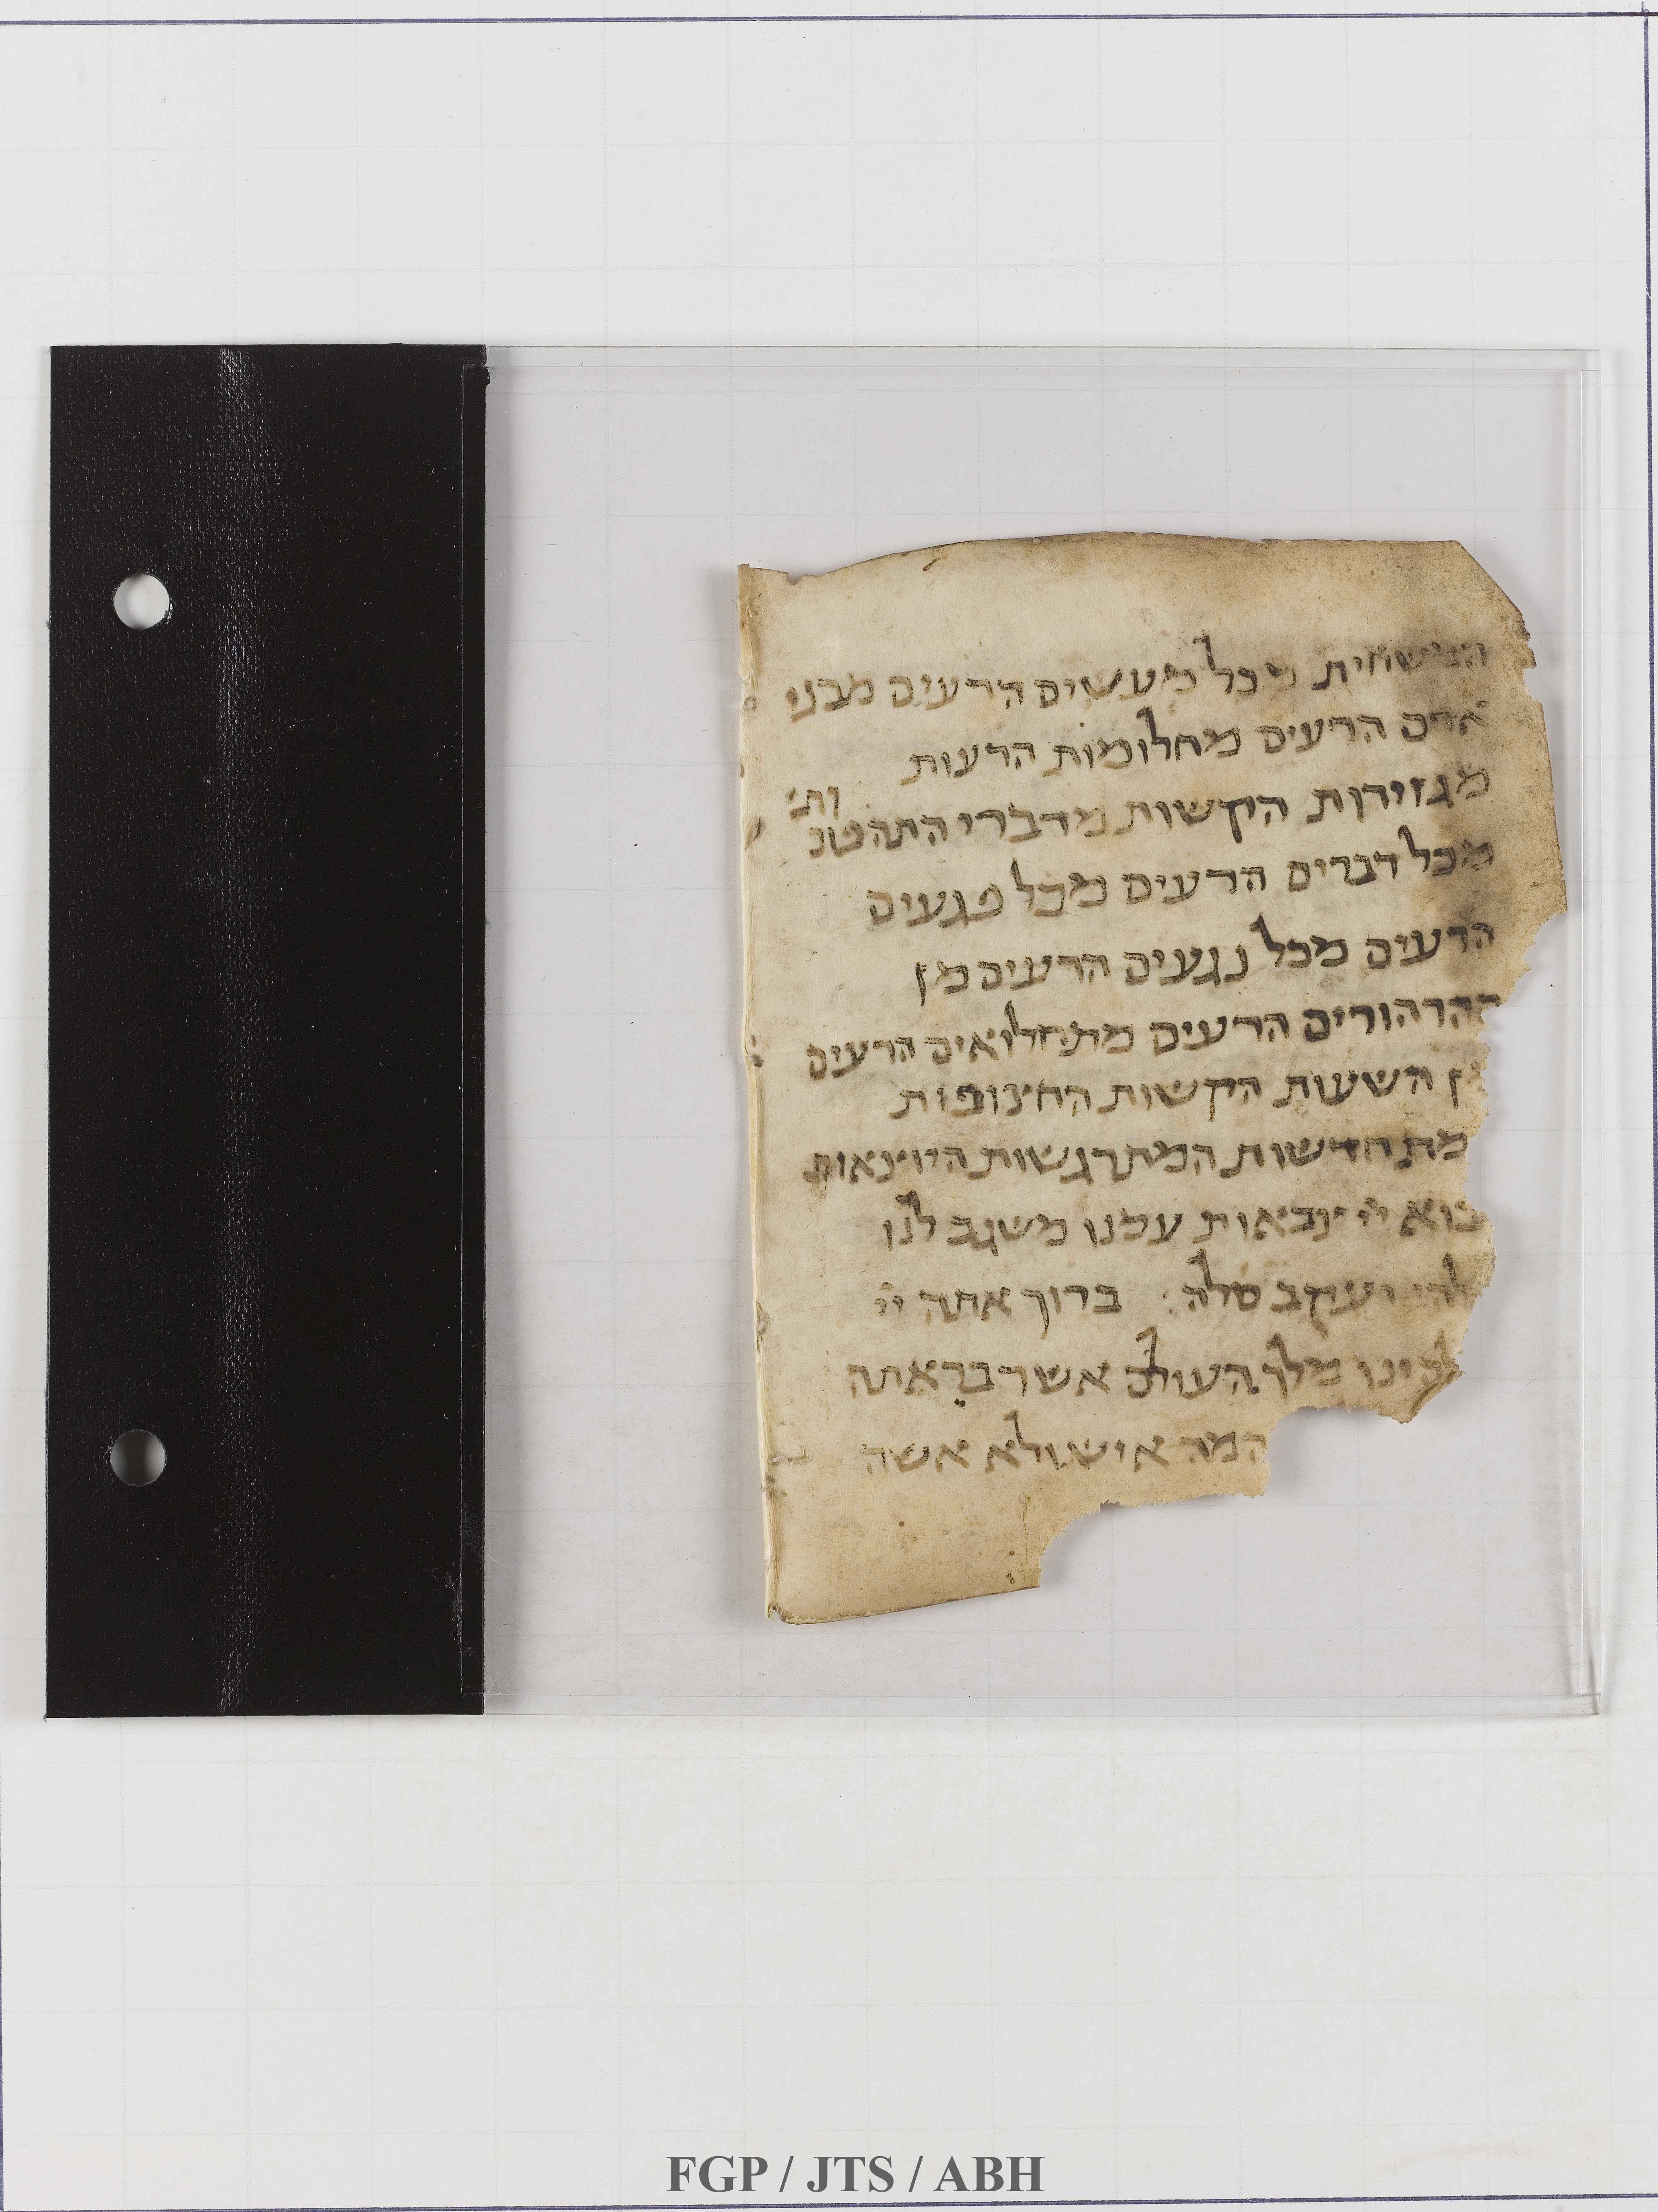 המשחית מכל מעשים הרעים מבני
אדם הרעים מחלומות הרעות
ות׳
מגזירות הקשות מדברי התהטנ
מכל דברים הרעים מכל פגעים
הרעים מכל נגעים הרעים מן
ההרהורים הרעים מתחלואים הרעים
השעות הקשות החצופות
מתחדשות המתרגשות היוצאות
ייי צבאות עמנו משגב לנו
יעקב סלה: ברוך אתה ייי
מלך העולם אשר בראתה
המה איש ולא אשה
FGP / JTS / ABH